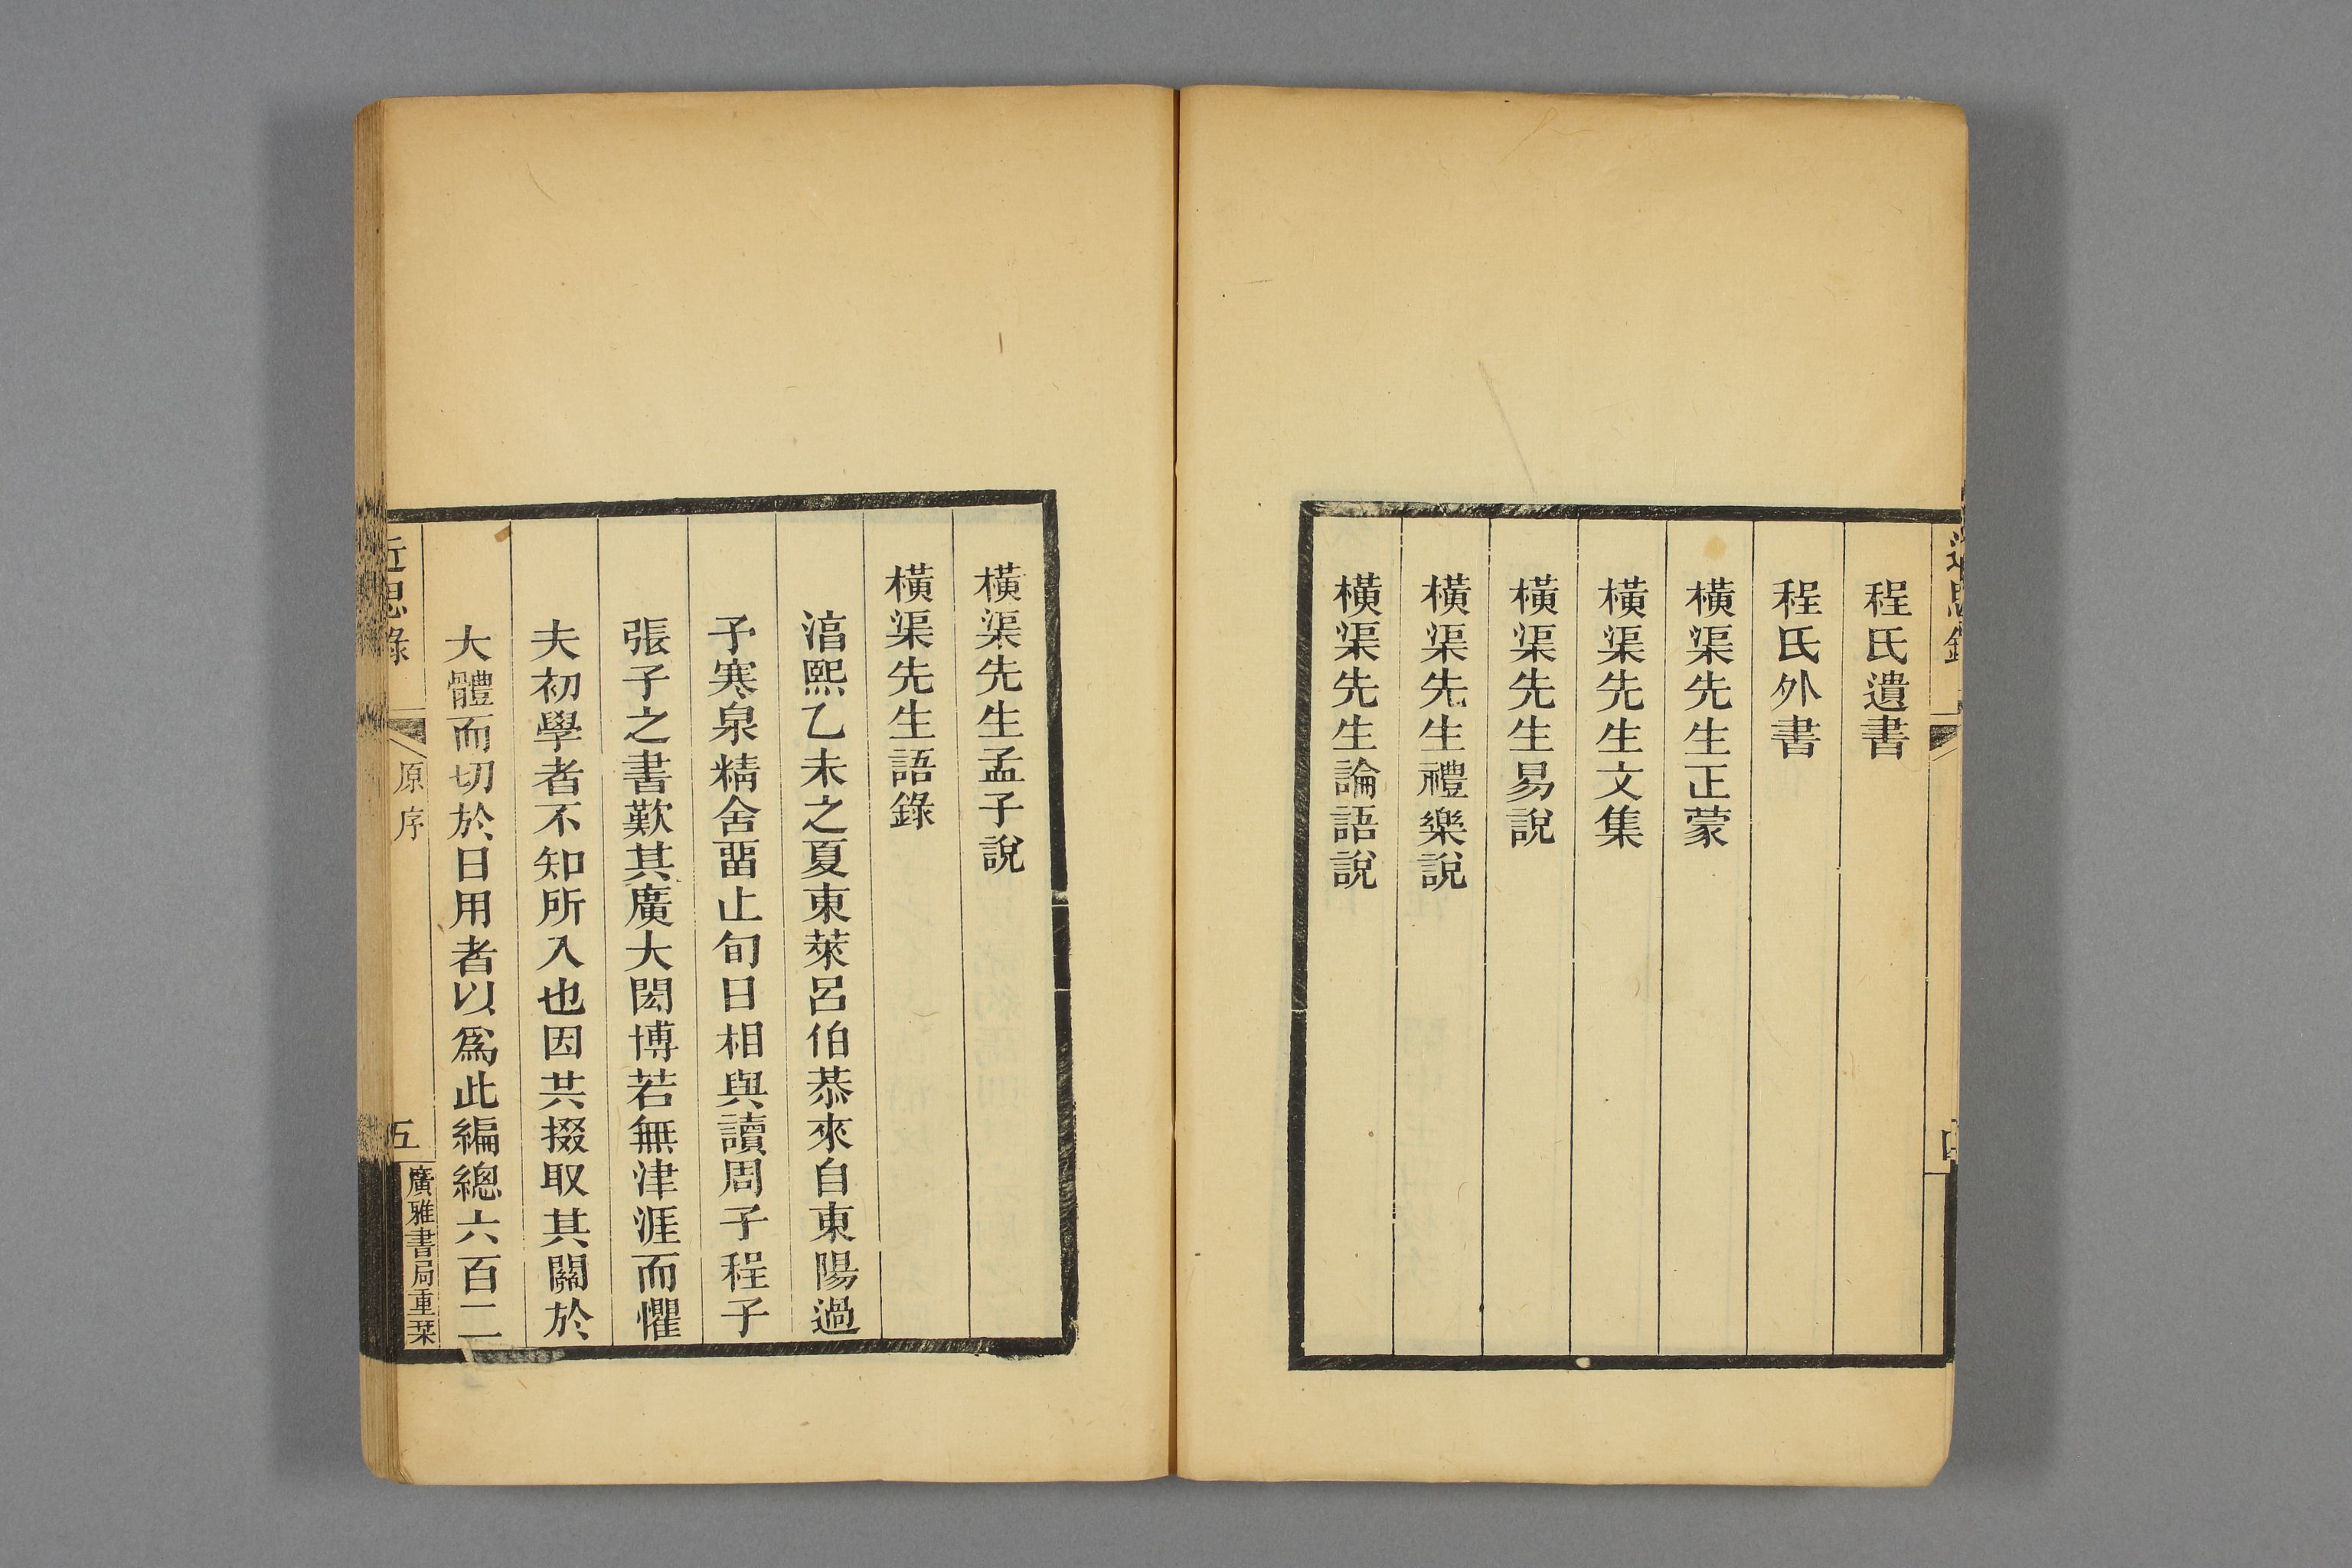 程氏遺書
程氏外書
橫渠先生正蒙
橫渠先生文集
橫渠先生易說
橫渠先生禮樂說
橫渠先生論語說
橫渠先生孟子說
橫渠先生語錄
淯熙乙未之夏東萊呂伯恭來自東陽過
予寒泉精舍畱止旬日相與讀周子程子
張子之書歎其廣大閎博若無津涯而懼
夫初學者不知所入也因共掇取其關於
大體而切於日用者以爲此編總六百二
近思錄
原序
五
廣雅書局重栞